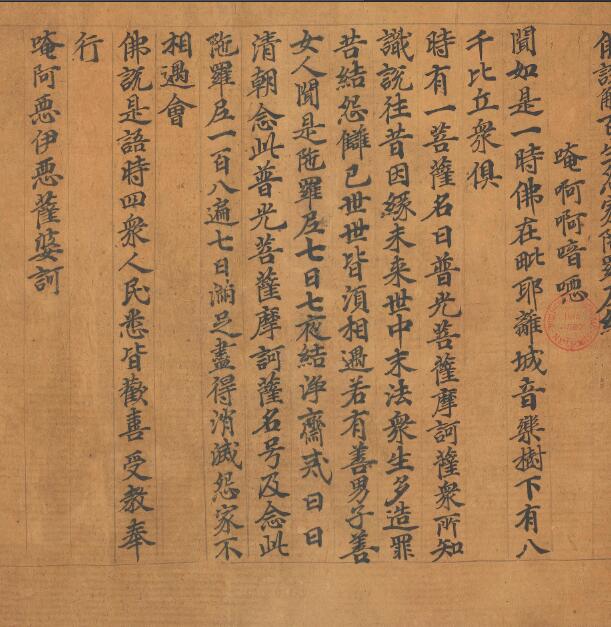 佛說解百生怨家陁羅尼經
唵啊啊喑噁
聞如是一時佛在毗耶離城音樂樹下有八
千比丘衆俱
時有一菩薩名曰普光菩薩摩訶薩衆所知
識說往昔因緣未来世中末法衆生多造罪
苦結怨讎已世世皆須相遇若有善男子善
女人聞是陁羅尼七日七夜結淨齋戒日日
清朝念此普光菩薩摩訶薩名号及念此
陁羅尼一百八遍七日滿足盡得消滅怨家不
相遇會
佛說是語時四衆人民悉皆歡喜受教奉
行
唵阿悪伊悪薩婆訶